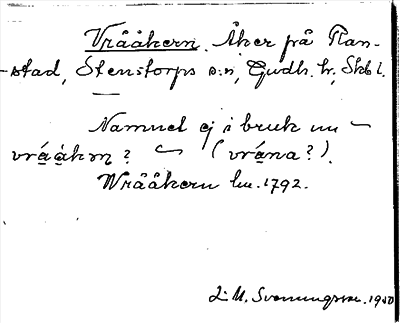 Vrååkern. Åker på Ran-
stad, Stenstorps s:n, Gudh. hr, Skbl.
Namnet ej i bruk nu
vrååkɳ? (vråna?).
Wrååkern lm. 1792.
J. M. Svenningsson. 1950